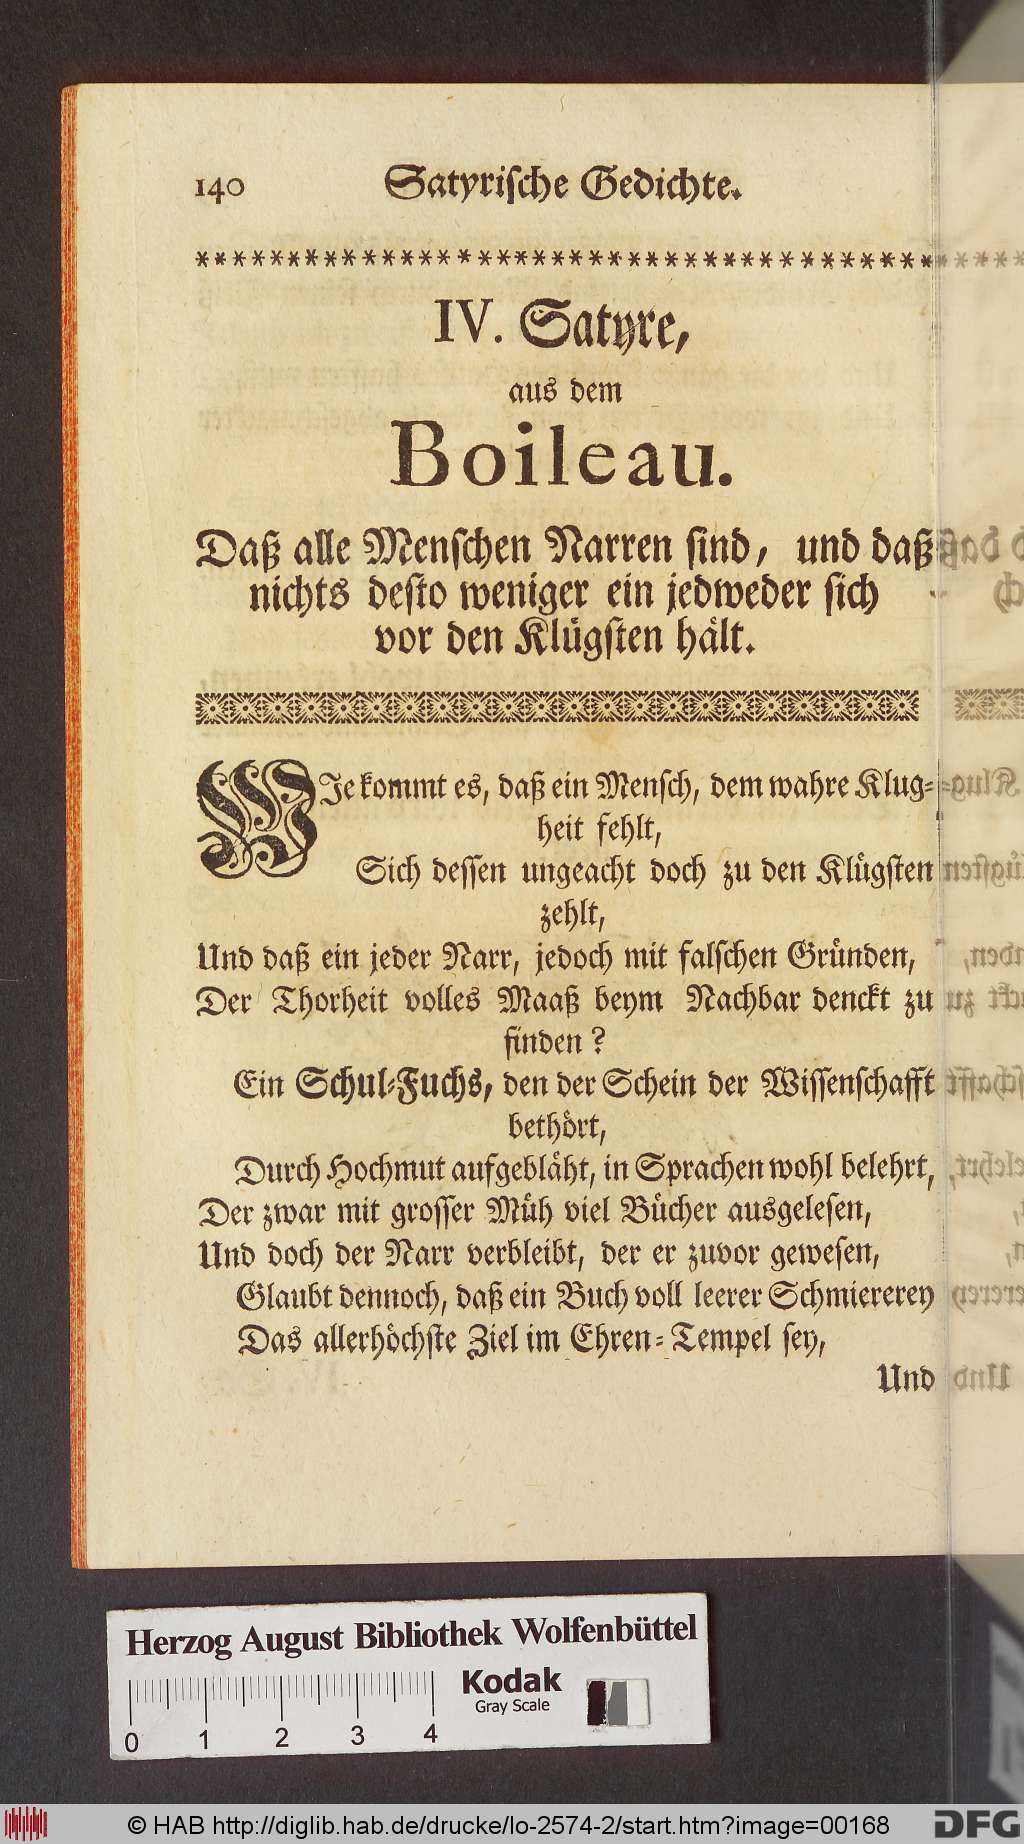 140 Satyrische Gedichte.
IV. Satyre,
aus dem
Boileau.
Daß alle Menschen Narren sind, und daß
nichts desto weniger ein jedweder sich
vor den Klügsten hält.
WIe kommt es, daß ein Mensch, dem wahre Klug-
heit fehlt,
Sich dessen ungeacht doch zu den Klügsten
zehlt,
Und daß ein jeder Narr, jedoch mit falschen Gründen,
Der Thorheit volles Maaß beym Nachbar denckt zu
finden?
Ein Schul-Fuchs, den der Schein der Wissenschafft
bethört,
Durch Hochmut aufgebläht, in Sprachen wohl belehrt,
Der zwar mit grosser Müh viel Bücher ausgelesen,
Und doch der Narr verbleibt, der er zuvor gewesen,
Glaubt dennoch, daß ein Buch voll leerer Schmiererey
Das allerhöchste Ziel im Ehren-Tempel sey,
Und
Herzog August Bibliothek Wolfenbüttel
Kodak
Gray Scale
0 1 2 3 4
© HAB http://diglib.hab.de/drucke/lo-2574-2/start.htm?image=00168
DFG